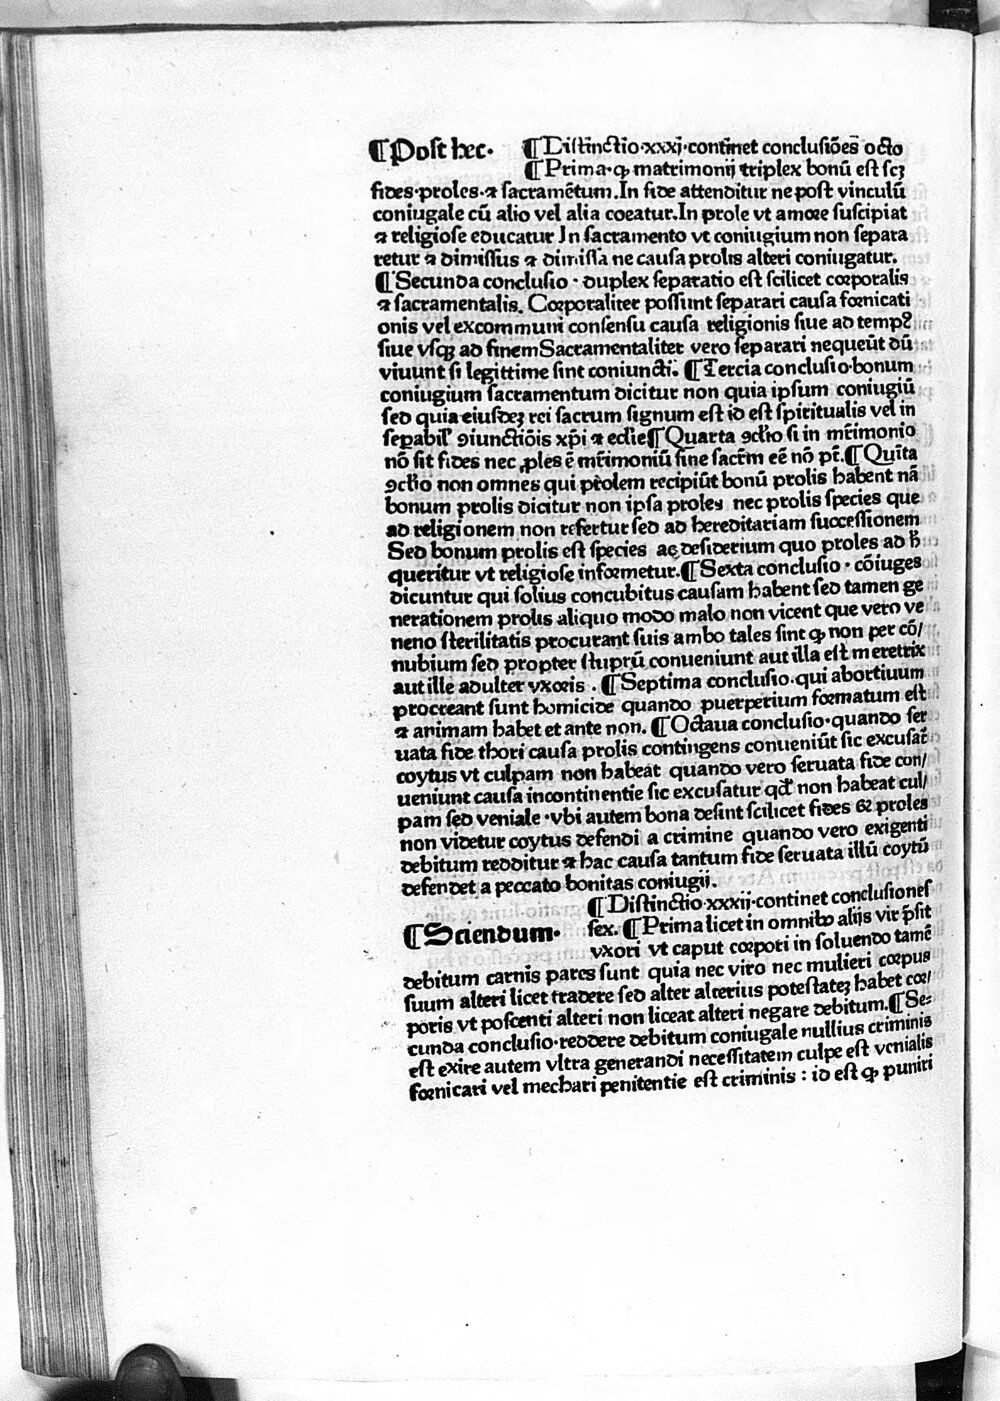 ¶Post hec. ¶Distinctio·xxxj·contīnet conclusiōes octo
¶Prima·ꝙ matrimonij triplex bonū est scꝫ
fides·proles·⁊ sacramētum.In fide attenditur ne post vinculū
coniugale cū alio vel alia coeatur.In prole vt amore suscipiat
⁊ religiose educatur In sacramento vt coniugium non separa
retur ⁊ dimissus ⁊ dimissa ne causa prolis alteri coniugatur.
¶Secunda conclusio · duplex separatio est scilicet corporalis
⁊ sacramentalis. Corporaliter possunt separari causa fornicati
onis vel ex communi consensu causa religionis siue ad tempꝰ
siue vsqꝫ ad finem Sacramentaliter vero separari nequeūt dū
viuunt si legittime sint coniuncti. ¶Tercia conclusio·bonum
coniugium sacramentum dicitur non quia ipsum coniugiū
sed quia eiusdeꝫ rei sacrum signum est id est spiritualis vel in
sepabil' ꝯiunctiōis xp̄i ⁊ ecclīe ¶Quarta ꝯclīo si in mr̄imonio
nō sit fides nec ꝓles ē mr̄imoniū sine sacr̄m eē nō pt̄.¶Quīta
ꝯclīo non omnes qui prolem recipiūt bonū prolis habent nā
bonum prolis dicitur non ipsa proles nec prolis species que
ad religionem non refertur sed ad hereditariam successionem
Sed bonum prolis est species ac desiderium quo proles ad h̄
queritur vt religiose informetur.¶Sexta conclusio · cōiuges
dicuntur qui solius concubitus causam habent sed tamen ge
nerationem prolis aliquo modo malo non vicent que vero ve
neno sterilitatis procurant suis ambo tales sint ꝙ non per cō/
nubium sed propter stuprū conueniunt aut illa est meretrix
aut ille adulter vxoris . ¶Septima conclusio.qui abortiuum
procreant sunt homicide quando puerperium formatum est
⁊ animam habet et ante non. ¶Octaua conclusio·quando ser
uata fide thori causa prolis contingens conueniūt sic excusat̄
coytus vt culpam non habeat quando vero seruata fide con/
ueniunt causa incontinentie sic excusatur qd̄ non habeat cul/
pam sed veniale ·vbi autem bona desint scilicet fides & proles
non videtur coytus defendi a crimine quando vero exigenti
debitum redditur ⁊ hac causa tantum fide seruata illū coytū
defendet a peccato bonitas coniugij.
¶Distinctio·xxxij·continet conclusiones
¶Sciendum· sex. ¶Prima licet in omnibꝰ alijs vir p̄sit
vxori vt caput corpori in soluendo tamē
debitum carnis pares sunt quia nec viro nec mulieri corpus
suum alteri licet tradere sed alter alterius potestateꝫ habet cor/
poris vt poscenti alteri non liceat alteri negare debitum.¶Se=
cunda conclusio·reddere debitum coniugale nullius criminis
est exire autem vltra generandi necessitatem culpe est venialis
fornicari vel mechari penitentie est criminis : id est ꝙ puniri